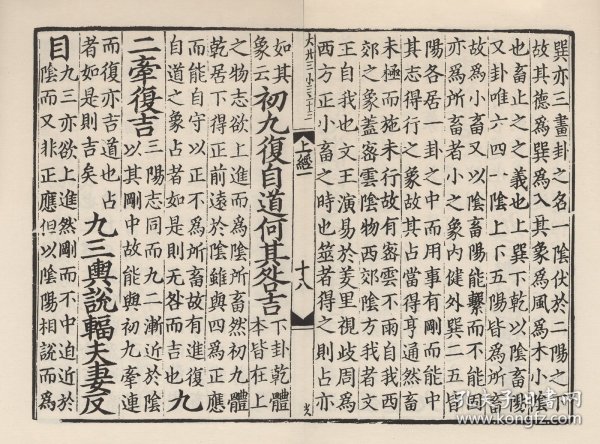 巽亦三畫卦之名一陰伏於二陽之
故其德爲巽爲入其象爲風爲木小陰
也畜止之之義也上巽下乾以陰畜陽
又卦唯六四一陰上下五陽皆爲所畜
故爲小畜又以陰畜陽能繫而不能
亦爲所畜者小之象内健外巽二五皆
陽各居一卦之中而用事有剛而能中
其志得行之象故其占當得亨通然畜
未極而施未行故有密雲不雨自我西
郊之象蓋密雲陰物西郊陰方我者文
王自我也文王演易於羑里視歧周爲
西方正小畜之時也筮者得之則占亦
上經一
十八
如其
象云
初九復自道何其咎吉
下卦乾體
本皆在上
之物志欲上進而爲陰所畜然初九體
乾居下得正前遠於陰雖與四爲正應
而能自守以正不爲所畜故有進復
自道之象占者如是則无咎而吉也
九
二牽復吉
三陽志同而九二漸近於陰
以其剛中故能與初九牽連
而復亦吉道也占
者如是則吉矣
九三輿說輻夫妻反
目
九三亦欲上進然剛而不中迫近於
陰而又非正應但以陰陽相說而爲
孔夫子旧书网